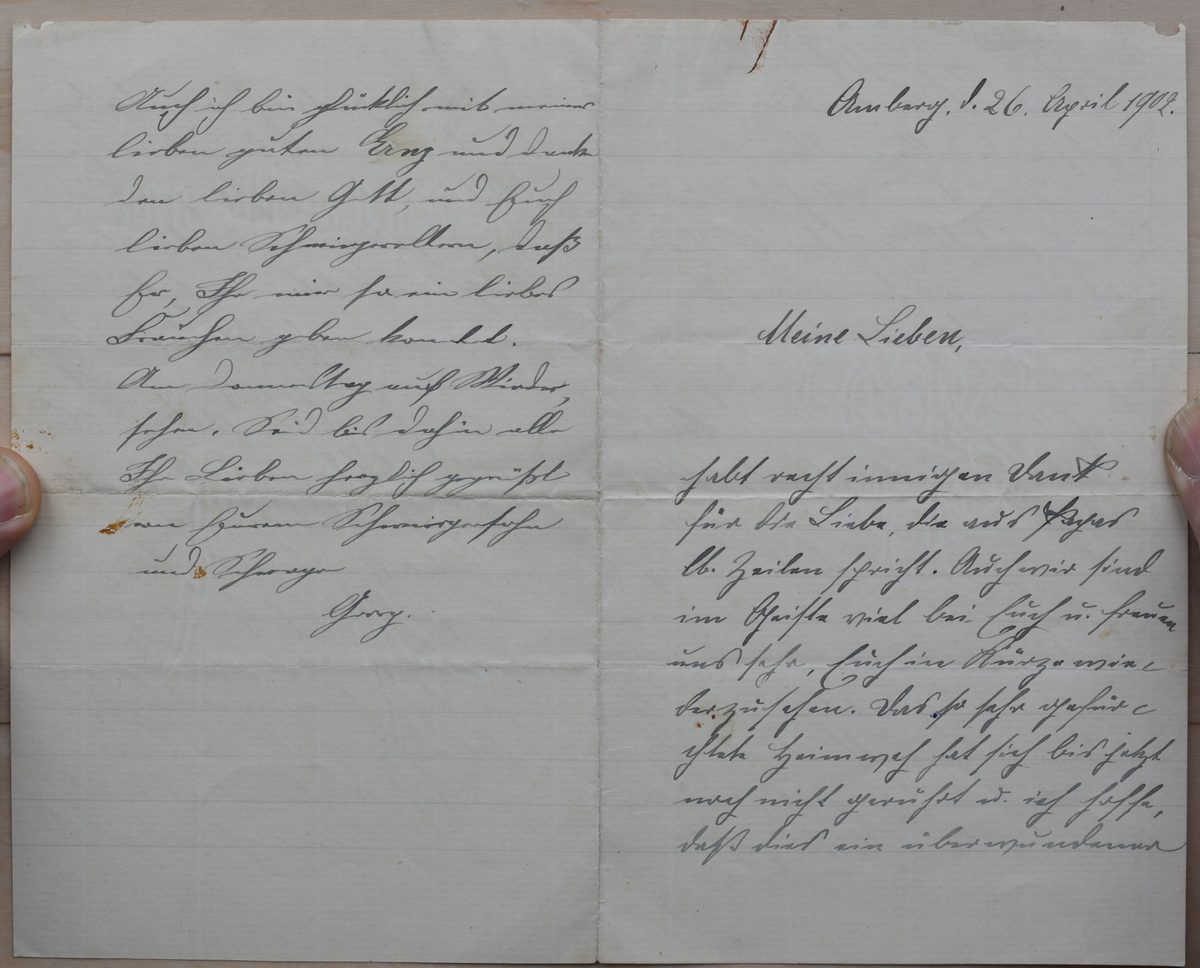 Amberg, d. 26. April 1902.
Meine Lieben,
habt recht innigen Dank
für die Liebe, die aus Papas
lb. Zeilen spricht. Auch wir sind
im Geiste viel bei Euch u. freuen
uns sehr, Euch in Kürze wie-
derzusehen. Das so sehr gefür-
chtete Heimweh hat sich bis jetzt
noch nicht gerührt u. ich hoffe,
daß dies ein überwundener
Auch ich bin glücklich mit meiner
lieben guten und danke
den lieben Gott, und Euch
lieben Schwiegereltern, daß
Er, Ihr mir so ein liebes
Frauchen geben konnt.
Am Donnerstag auf Wieder-
sehen. Seid bis dahin alle
Ihr Lieben herzlich gegrüßt
von Eurem Schwiegersohn
und Schwager
Georg.